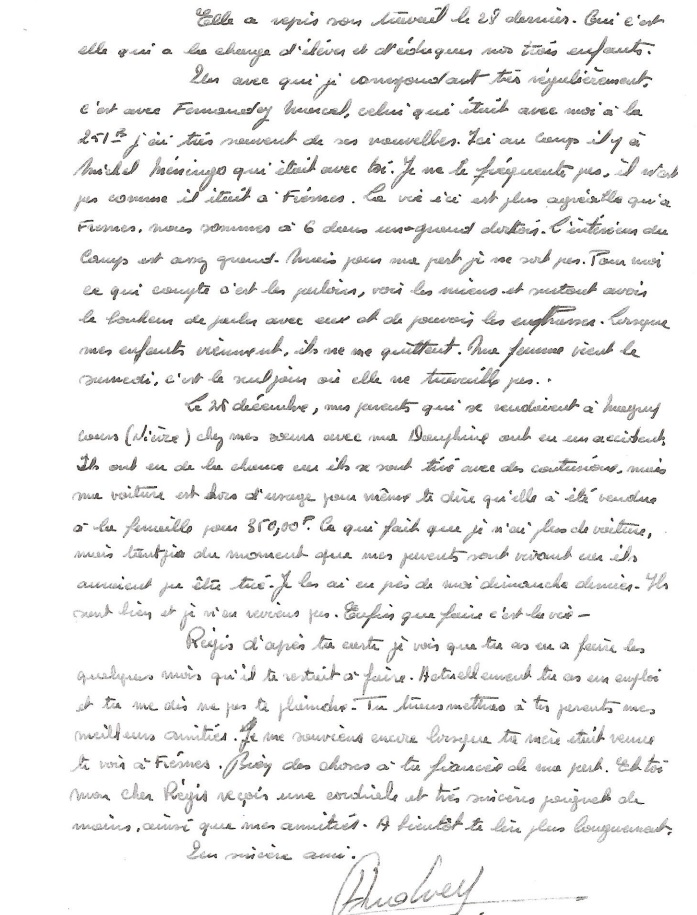 Elle a repis son travail le 28 dernier. Oui c'est
elle qui a la charge d'éléver et d'éduquer nos trois enfants.
Un avec qui je correspondant trés régulièrement,
c'est avec Fernandez Marcel, celui qui était avec moi à la
251 j'ai très souvent de ses nouvelles. Ici au camp il y à
Michel qui était avec toi. Je ne le fréquente pas, il n'est
pas comme il était à Frésnes. La vie ici est plus agréable qu'à
Fresnes, nous sommes à 6 dans un grand dortoir. L'intérieur du
Camp est assez grand. Mais pour ma part je ne sort pas. Pour moi
ce qui compte c'est les parloirs, voir les miens et surtout avoir
le bonheur de parler avec eux et de pouvoir les embrasser. Lorsque
mes enfants viennent, ils ne me quittent. Ma femme vient le
samedi, c'est le seul jour où elle ne travaille pas.
Le 25 décembre, mes parents qui se rendaient à Magny
cours (Nièvre) chez mes sœurs avec ma Dauphine ont eu un accident.
Ils ont eu de la chance car ils se sont tiré avec des contusions, mais
ma voiture est hors d'usage pour même te dire qu'elle à été vendue
à la ferraille pour 350,00F. Ce qui fait que je n'ai plus de voiture,
mais tant pis du moment que mes parents sont vivant car ils
auraient pu être tué. Je les ai eu près de moi dimanche dernier. Ils
sont bien et je n'en reviens pas. Enfin que faire c'est la vie -
Régis d'après ta carte je vois que tu as eu a faire les
quelques mois qu'il te restait à faire. Actuellement tu as un emploi
et tu me dis ne pas te plaindre. Tu transmettras à tes parents mes
meilleurs amitiés. Je me souviens encore lorsque ta mère était venue
te voir à Frésnes. Bien des choses à ta fiancée de ma part. Et toi
mon cher Régis reçois une cordiale et très sincère poignet de
mains, ainsi que mes amitiés. A bientôt te lire plus longuement.
Un sincère ami.